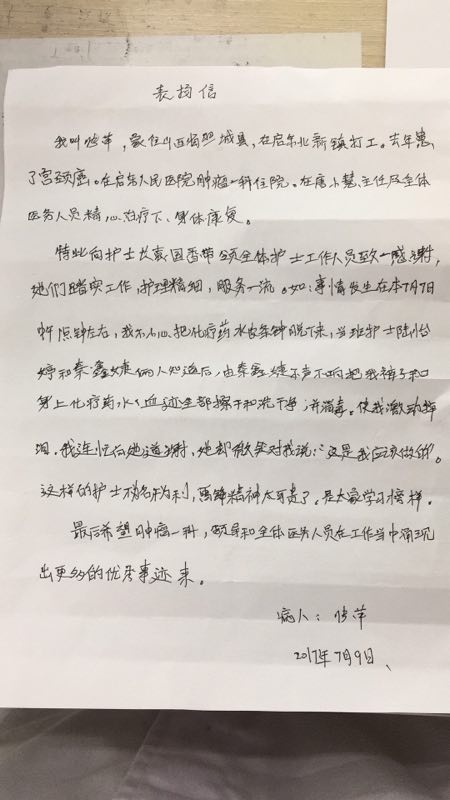 表扬信
我叫张萍,家住山西临汾城县,在启东北新镇打工。去年患
了宫颈癌。在启东人民医院肿瘤一科住院。在唐小慧主任及全体
医务人员精心治疗下、身体康复。
特此向护士长袁国香带领全体护士工作人员致一感谢,
她们踏实工作,护理精细,服务一流。如:事情发生在本7月7日
午 点钟左右,我不小心把化疗药水 脱下来,当班护士陆怡
婷和秦鑫婕俩人知道后,由秦鑫婕不声不响把我裤子和
身上化疗药水(血迹全部擦干和洗干净,并消毒。使我激动掉
泪。我连忙向她道谢,她却微笑对我说:“这是我应该做的。
这样的护士不为名为利,雷锋精神太可贵了。是大家学习榜样。
最后希望肿瘤一科,领导和全体医务人员在工作当中涌现
出更多的优秀事迹来。
病人:张萍
2017年7月9日、